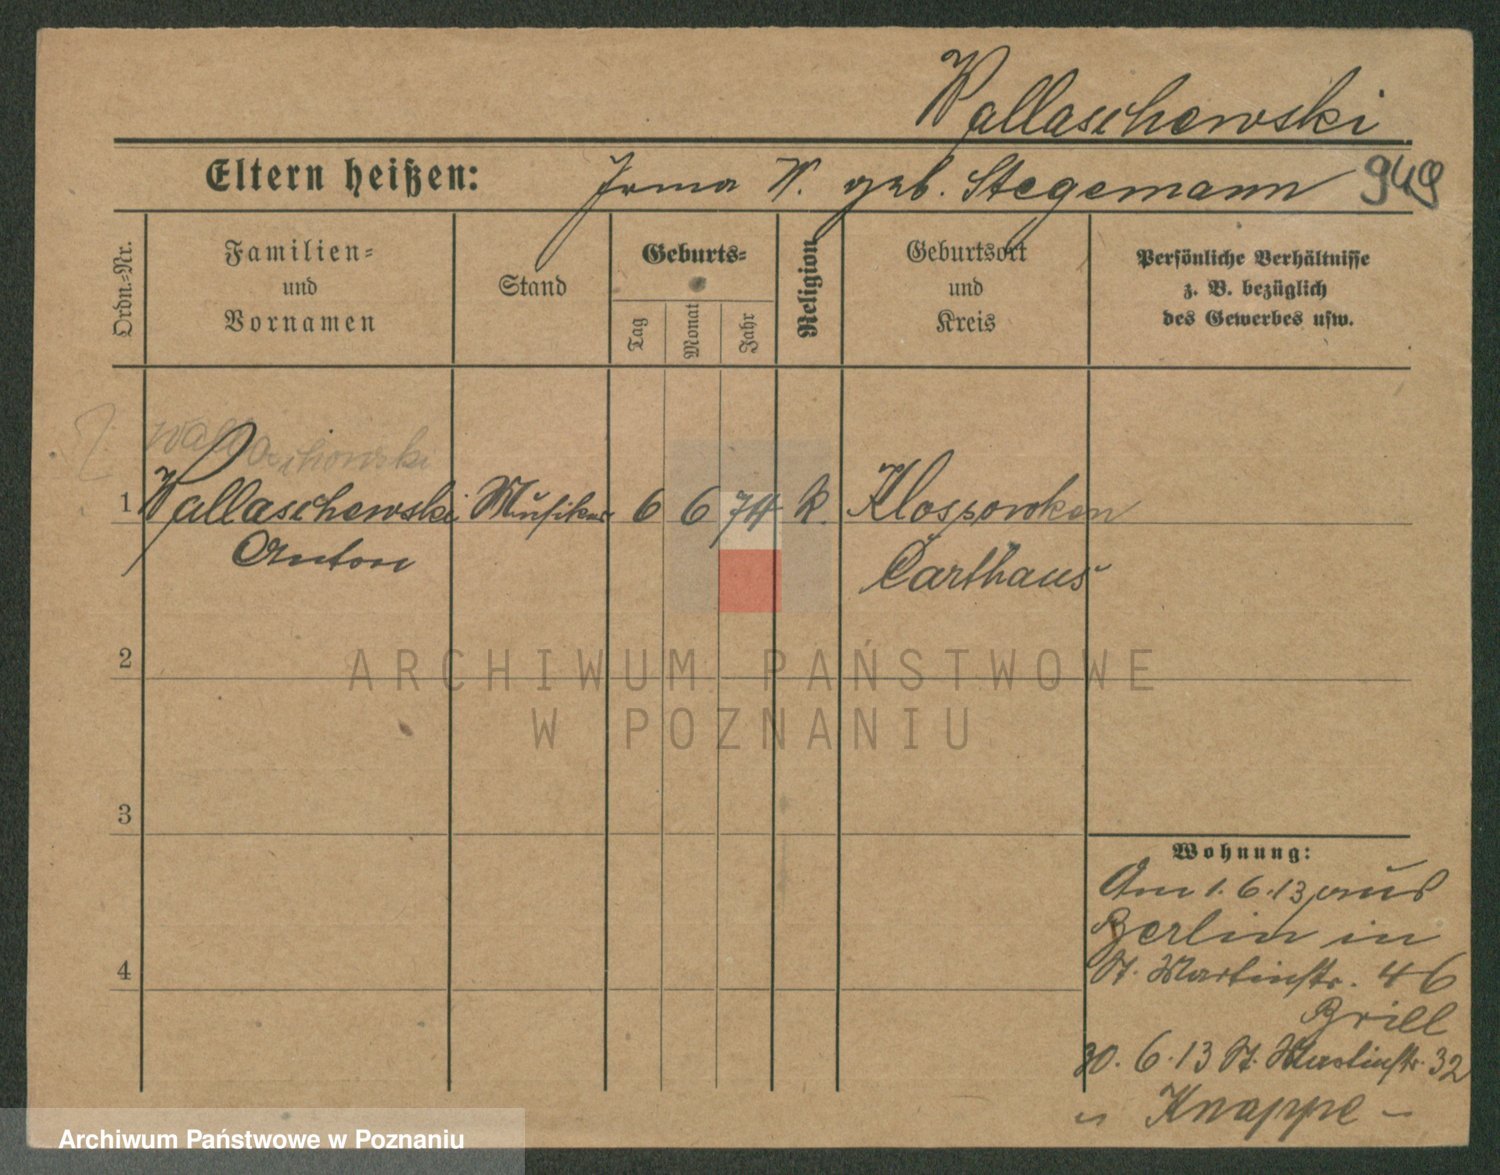 Wallaschewski
Eltern heißen: Irma W. geb. Stegemann 949
Ordn.-Nr.
Familien-
und
Vornamen
Stand
Geburts-
Tag
Monat
Jahr
Religion
Geburtsort
und
Kreis
Persönliche Verhältnisse
z. B. bezüglich
des Gewerbes usw.
1 Wallaschewski Musiker 6 6 74 k. Klossowken
Anton Carthaus
2
ARCHIWUM PAŃSTWOWE
W POZNANIU
3
Wohnung:
Am 1.6.13 aus
Berlin in
St. Martinstr. 46
Brill
4
30.6.13 St. Martinstr. 32
Knappe
Archiwum Państwowe w Poznaniu